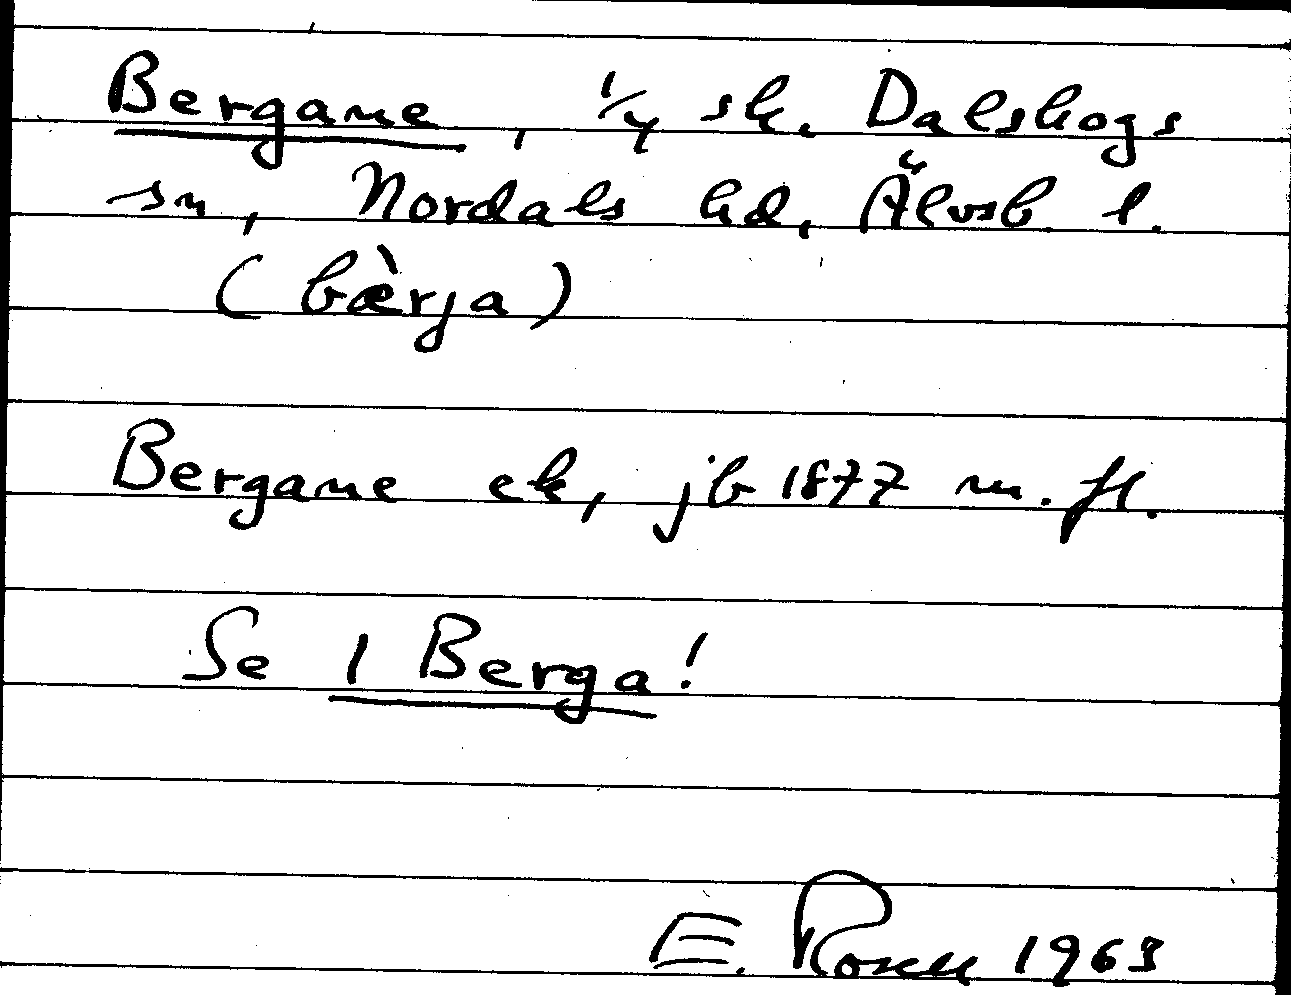 Bergane, 1/4 sk. Dalskogs
sn, Nordals hd, Älvsb. l.
(bæ̀rja)
Bergane ek, jb 1877 m. fl.
Se 1 Berga!
E. Rosell 1963